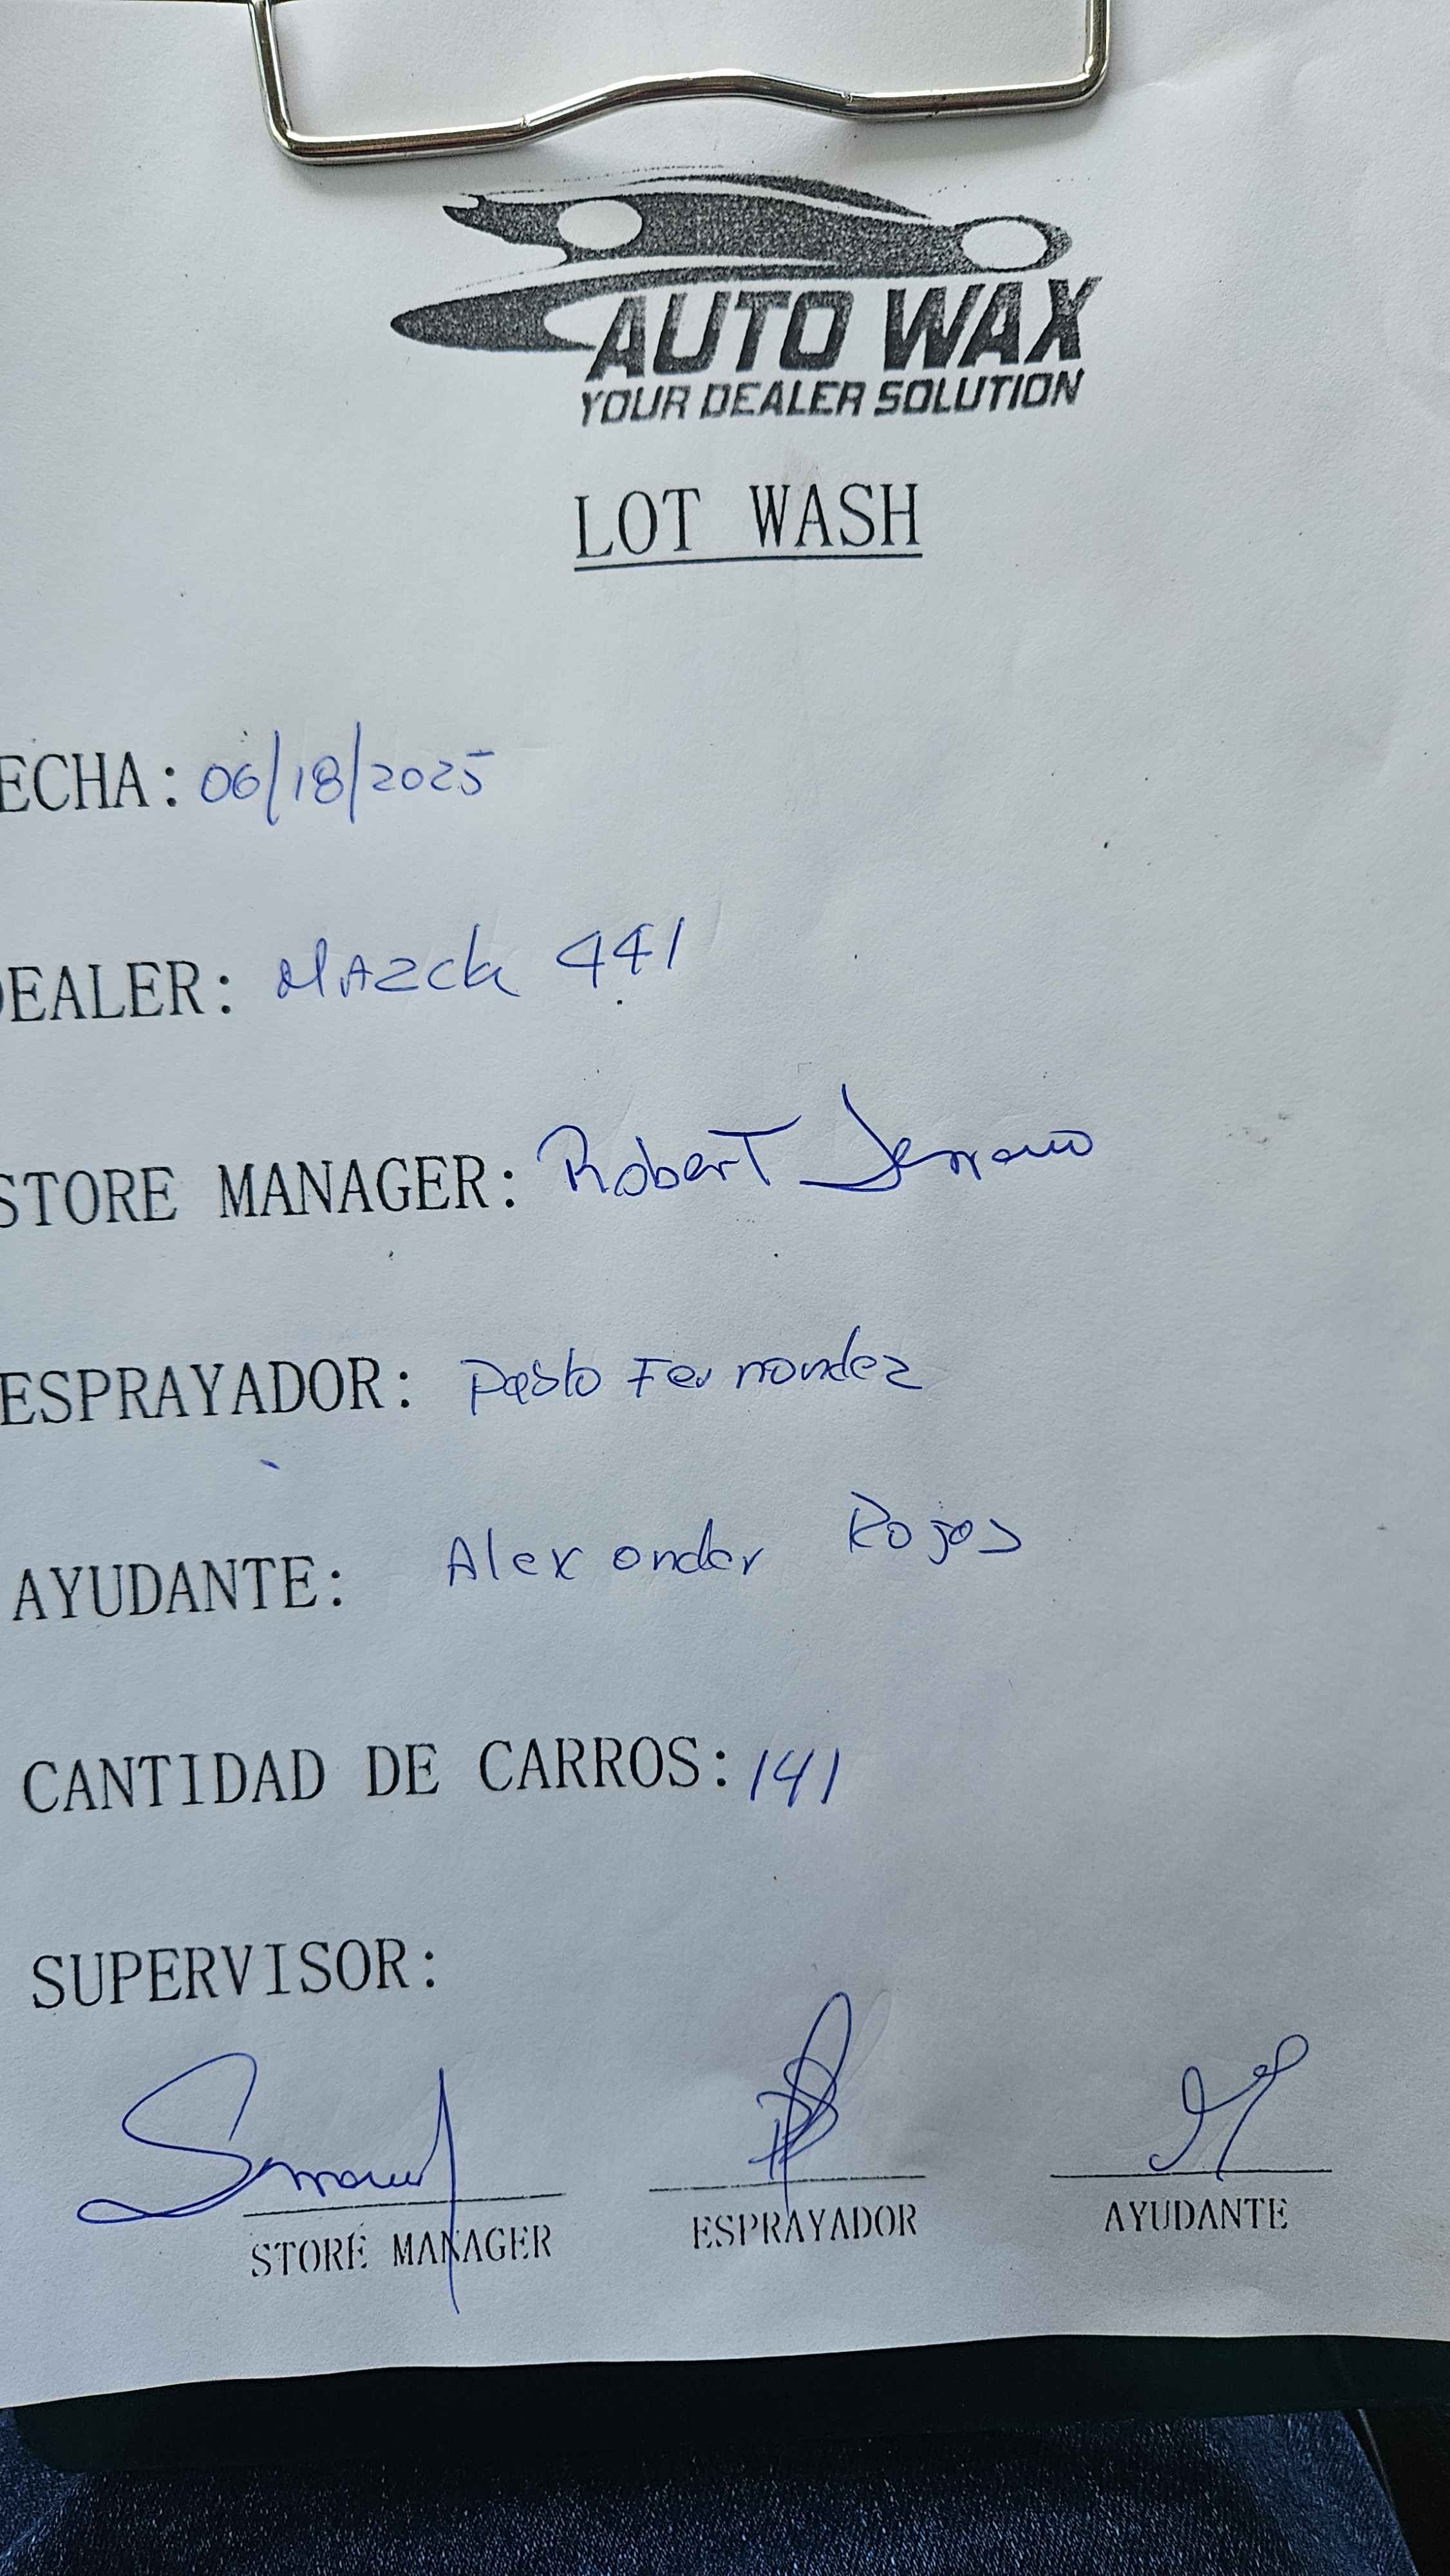 AUTO WAX
YOUR DEALER SOLUTION
LOT WASH
ECHA: 06/18/2025
DEALER: Mazda 441
STORE MANAGER: Robert Serrano
ESPRAYADOR: Pablo Fernandez
AYUDANTE: Alexander Rojas
CANTIDAD DE CARROS: 141
SUPERVISOR:
STORE MANAGER ESPRAYADOR AYUDANTE